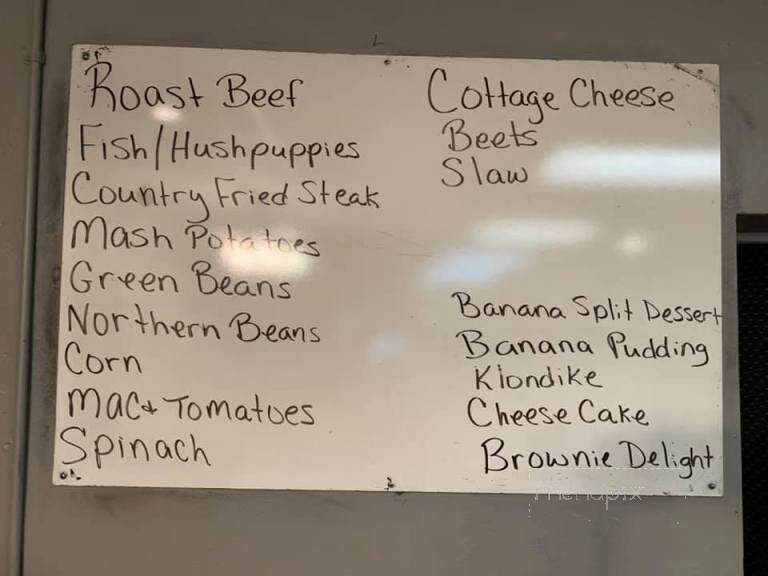 Roast Beef
Fish/Hushpuppies
Country Fried Steak
Mash Potatoes
Green Beans
Northern Beans
Corn
Mac+ Tomatoes
Spinach
Cottage Cheese
Beets
Slaw
Banana Split Dessert
Banana Pudding
Klondike
Cheese Cake
Brownie Delight
menupix